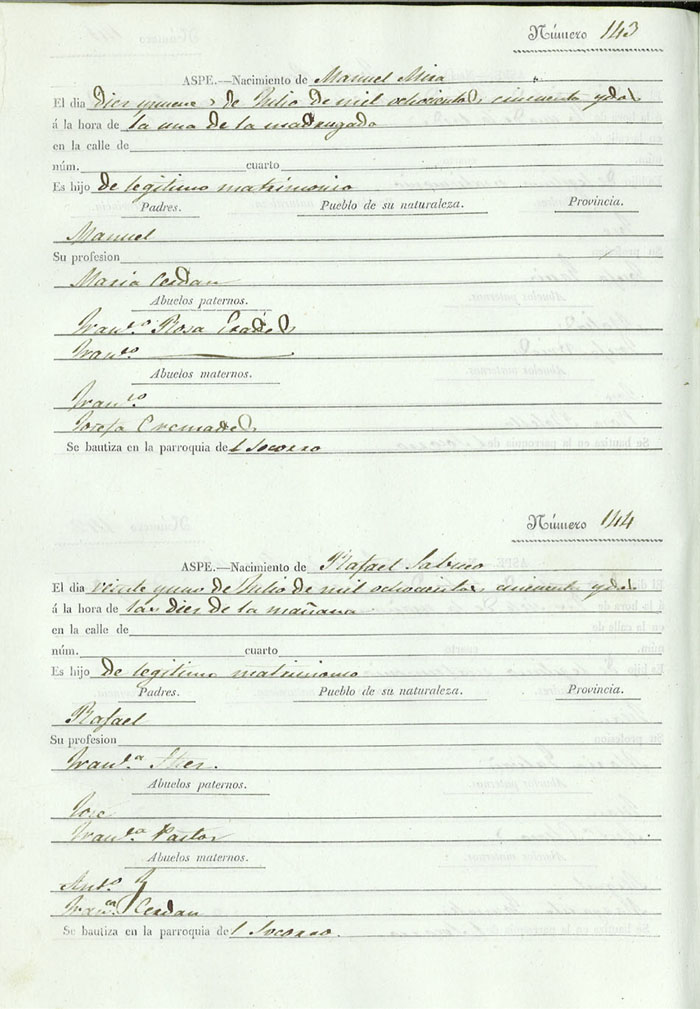 Número 143
ASPE.—Nacimiento de Manuel Mira
El dia diez y nueve de Julio de mil ochocientos cincuenta y dos
á la hora de la una de la madrugada
en la calle de
núm. cuarto
Es hijo de legitimo matrimonio
Padres. Pueblo de su naturaleza. Provincia.
Manuel
Su profesion
Maria Cerdan
Abuelos paternos.
Fran.co Rosa
Fran.co
Abuelos maternos.
Fran.co
Josefa Cremades
Se bautiza en la parroquia del Socorro
Número 144
ASPE.—Nacimiento de Rafael Sabuco
El dia veinte y uno de Julio de mil ochocientos cincuenta y dos
á la hora de las diez de la mañana
en la calle de
núm. cuarto
Es hijo de legitimo matrimonio
Padres. Pueblo de su naturaleza. Provincia.
Rafael
Su profesion
Fran.ca
Abuelos paternos.
José
Fran.ca Pastor
Abuelos maternos.
Ant.o
Fran.ca Cerdan
Se bautiza en la parroquia del Socorro.